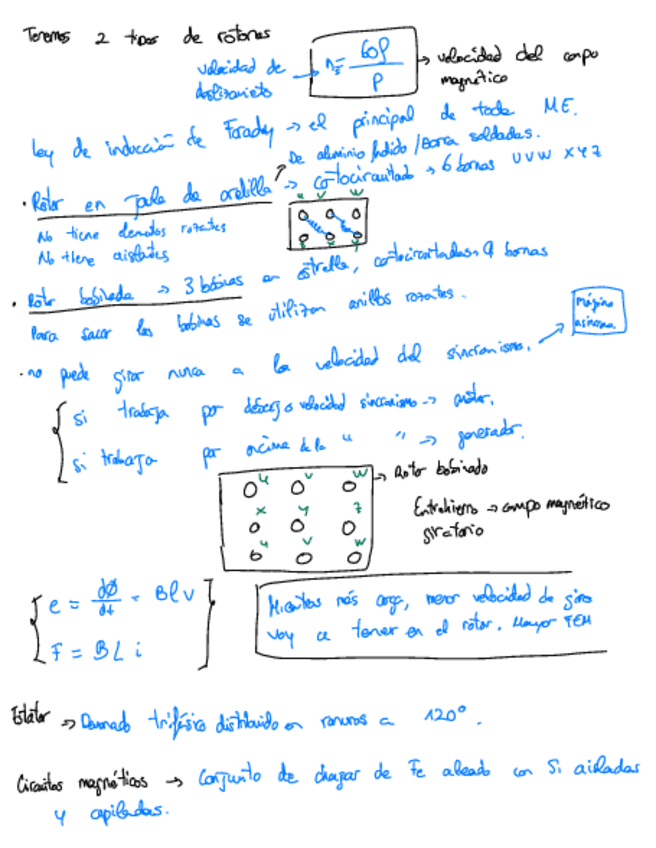 Tenemos 2 tipos de rotores
velocidad de deslizamiento → ns = 60f / P → velocidad del campo magnético
Ley de inducción de Faraday → el principal de toda ME.
De aluminio fundido / barra soldadas.
· Rotor en jaula de ardilla → cortocircuitado → 6 bornas UVW XYZ
No tiene elementos rozantes
No tiene aislantes
u v w
z x y
· Rotor bobinado → 3 bobinas en estrella, cortocircuitadas, 9 bornas
Para sacar las bobinas se utilizan anillos rozantes.
Máquina asíncrona.
· no puede girar nunca a la velocidad del sincronismo.
si trabaja por debajo velocidad sincronismo → motor.
si trabaja por encima de la " " → generador.
u v w → Rotor bobinado
x y z
u v w
Entrehierro → campo magnético giratorio
e = dφ/dt = Blv
F = BLi
Mientras más carga, menor velocidad de giro
voy a tener en el rotor. Mayor FEM
Estátor → Devanado trifásico distribuido en ranuras a 120°.
Circuitos magnéticos → Conjunto de chapas de Fe aleado con Si aisladas
y apiladas.